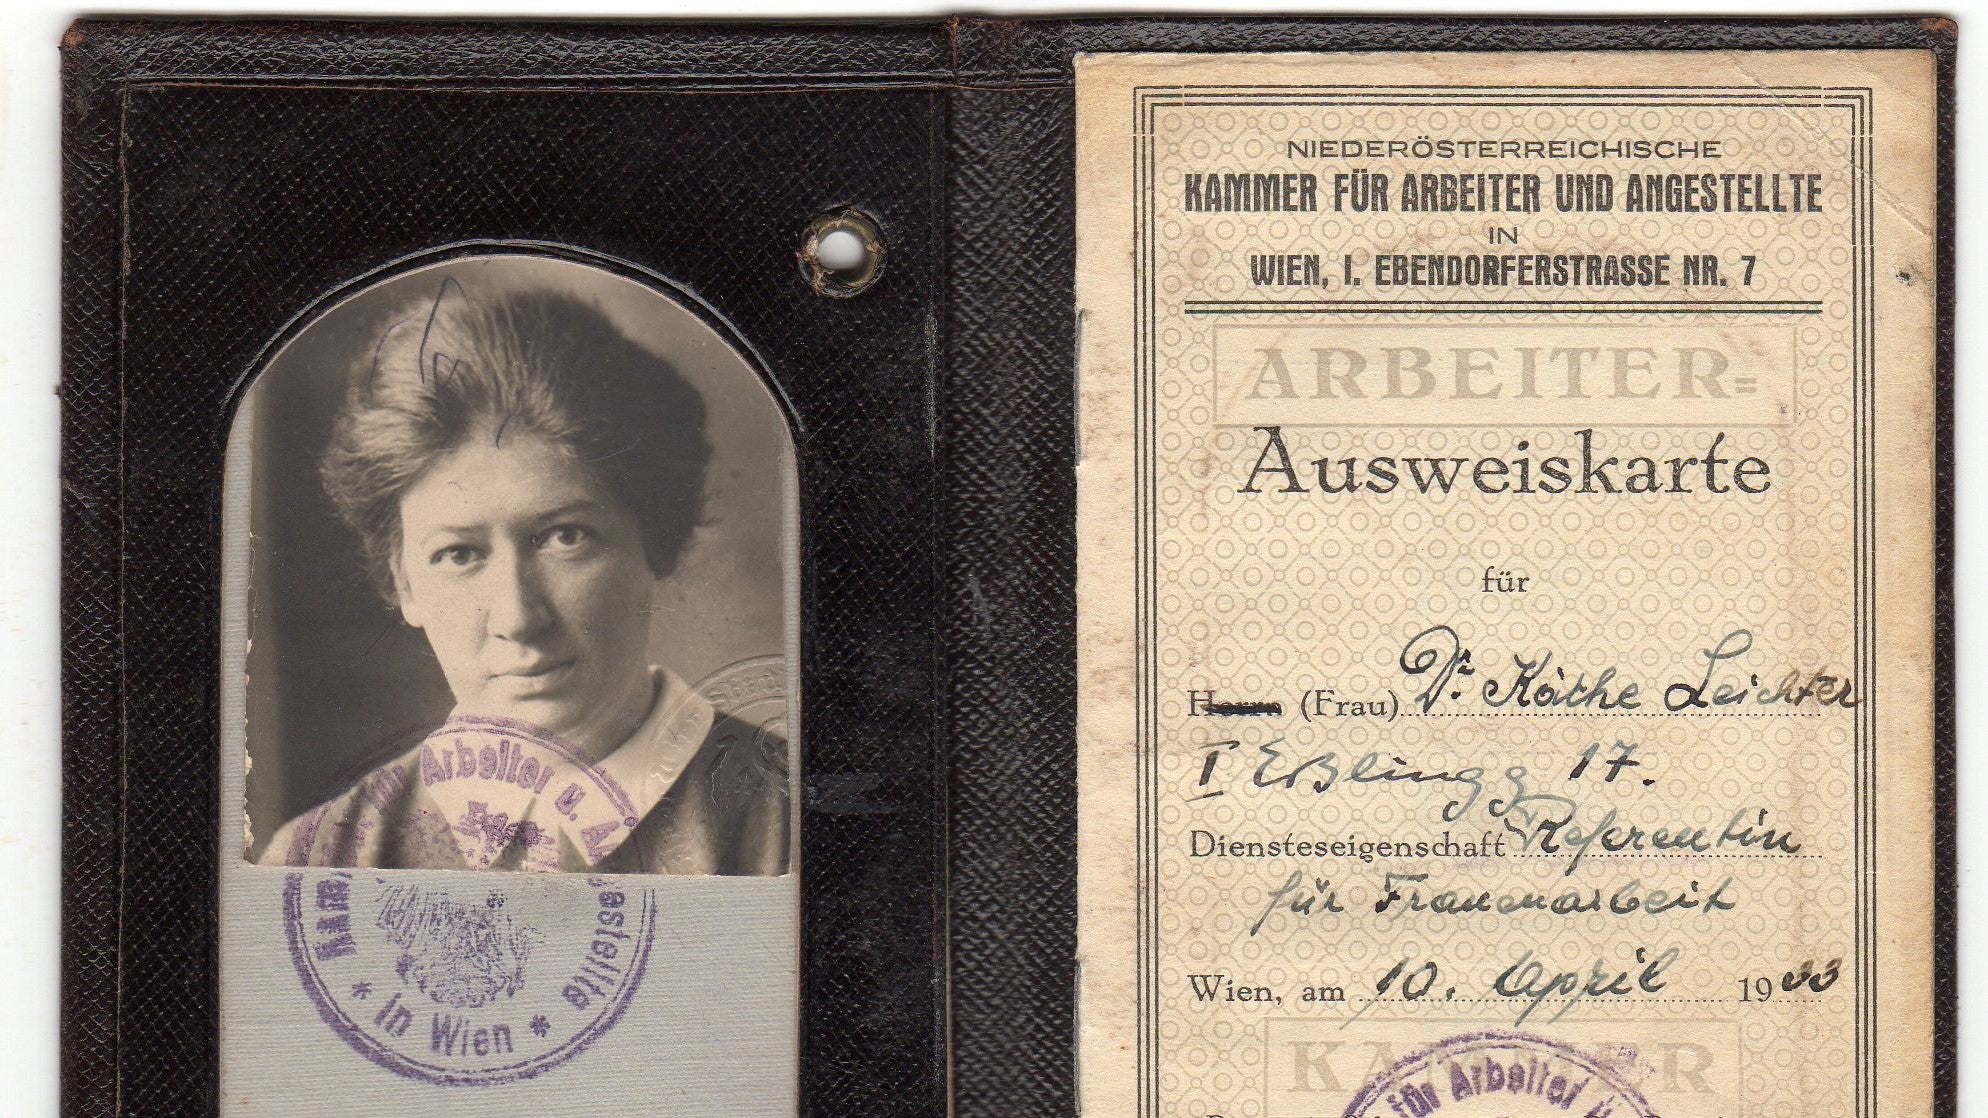 für Arbeiter u. A
Kam
estellte
* in Wien *
NIEDERÖSTERREICHISCHE
KAMMER FÜR ARBEITER UND ANGESTELLTE
IN
WIEN, I. EBENDORFERSTRASSE NR. 7
ARBEITER=
Ausweiskarte
für
Herrn (Frau) Dr. Käthe Leichter
I Eßlingg 17.
Diensteseigenschaft Referentin
für Frauenarbeit
Wien, am 10. April 1933
KAMMER
für Arbeiter u